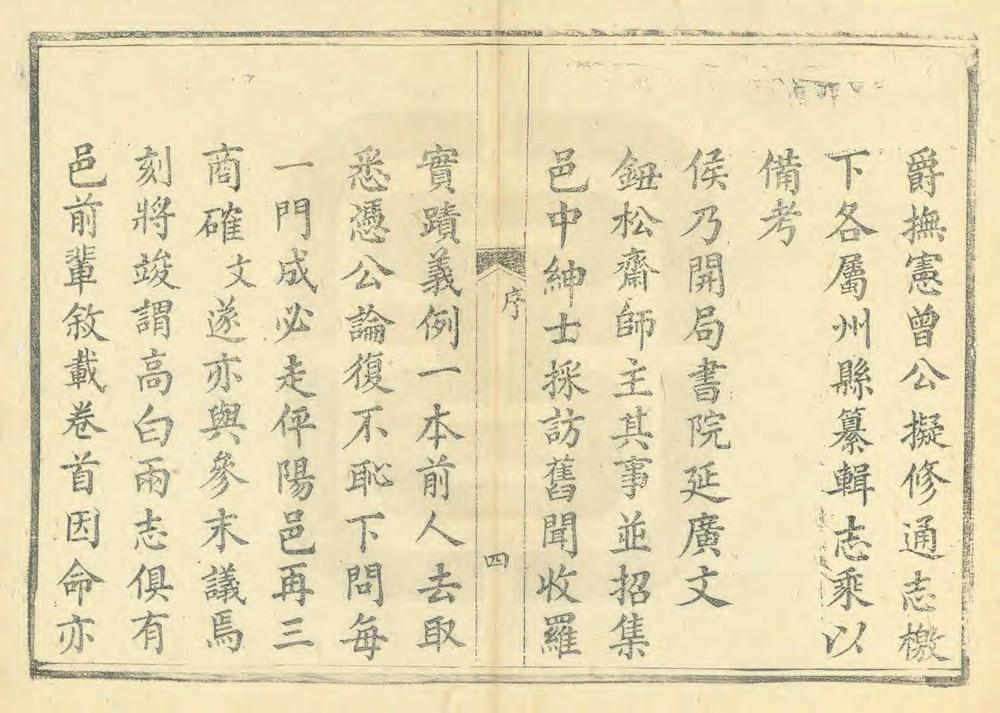 爵撫憲曾公擬修通志檄
下各屬州縣纂輯志乘以
備考
侯乃開局書院延廣文
鈕松齋師主其事並招集
邑中紳士採訪舊聞收羅
序
四
實蹟義例一本前人去取
悉憑公論復不恥下問每
一門成必走伻陽邑再三
商確文遂亦與參末議焉
刻將竣謂高白兩志俱有
邑前輩敘載卷首因命亦